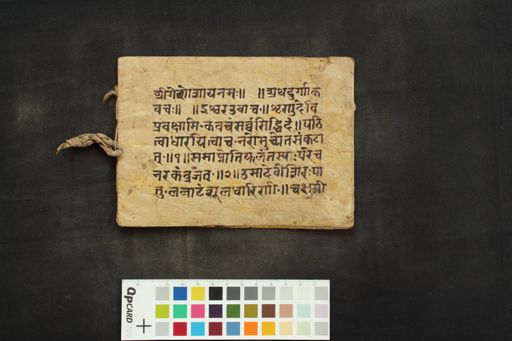 श्रीगणेशायनमः॥ ॥अथदुर्गाक
वचः॥ ॥ईश्वरउवाच॥श्रृणुदेवि
प्रवक्षामि॰कवचंसर्वसिद्धिदं॥पठि
त्वाधारयित्वाच॰नरोमुच्येतसंकटा
त्॥१॥
नरकंव्रजेत्॥२॥उमादेवीशिरःपा
तु॰ललाटंशूलधारिणी॥चक्षुषी
QPCARD